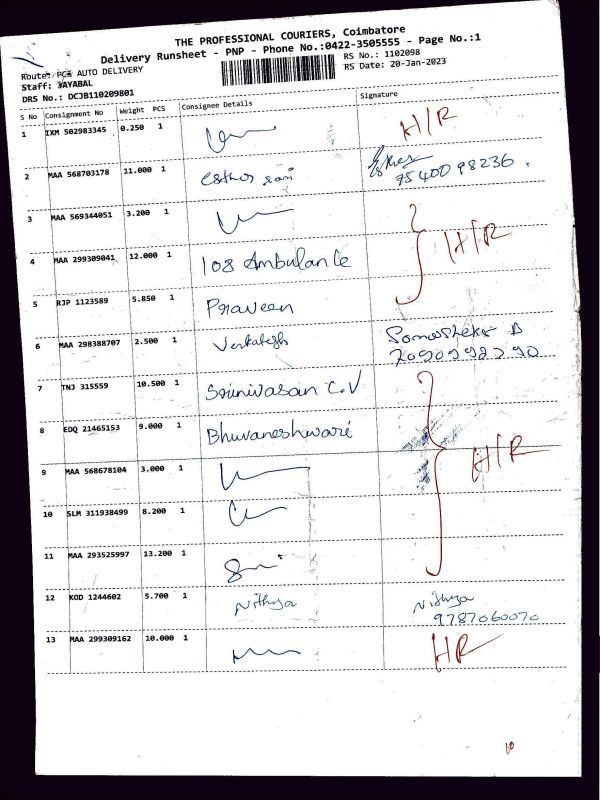 THE PROFESSIONAL COURIERS, Coimbatore
Delivery Runsheet - PNP - Phone No.:0422-3505555 - Page No.:1
Route: PCE AUTO DELIVERY
RS No.: 1102098
Staff: JAYABAL
RS Date: 20-Jan-2023
DRS No.: DCJB110209801
S No Consignment No Weight PCS Consignee Details Signature
1 IXM 502983345 0.250 1 H/R
2 MAA 568703178 11.000 1 esther rani 75400 98236.
3 MAA 569344051 3.200 1
4 MAA 299309041 12.000 1 108 Ambulance H/R
5 RJP 1123589 5.850 1 Praveen
6 MAA 298388707 2.500 1 Venkatesh
7 TNJ 315559 10.500 1 Srinivasan C.V
8 EDQ 21465153 9.000 1 Bhuvaneshwari
9 MAA 568678104 3.000 1 H/R
10 SLM 311938499 8.200 1
11 MAA 293525997 13.200 1
12 KOD 1244602 5.700 1 Nithya Nithya
9787060070
13 MAA 299309162 10.000 1 HR
10